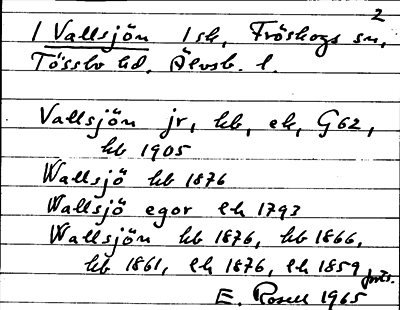 2
1 Vallsjön 1 sk, Fröskogs sn,
Tössbo hd, Älvsb. l.
Vallsjön jr, hb, ek, G62,
hb 1905
Wallsjö hb 1876
Wallsjö egor lk 1793
Wallsjön hb 1876, hb 1866,
hb 1861, lk 1876, lk 1859 forts.
E. Rosell 1965